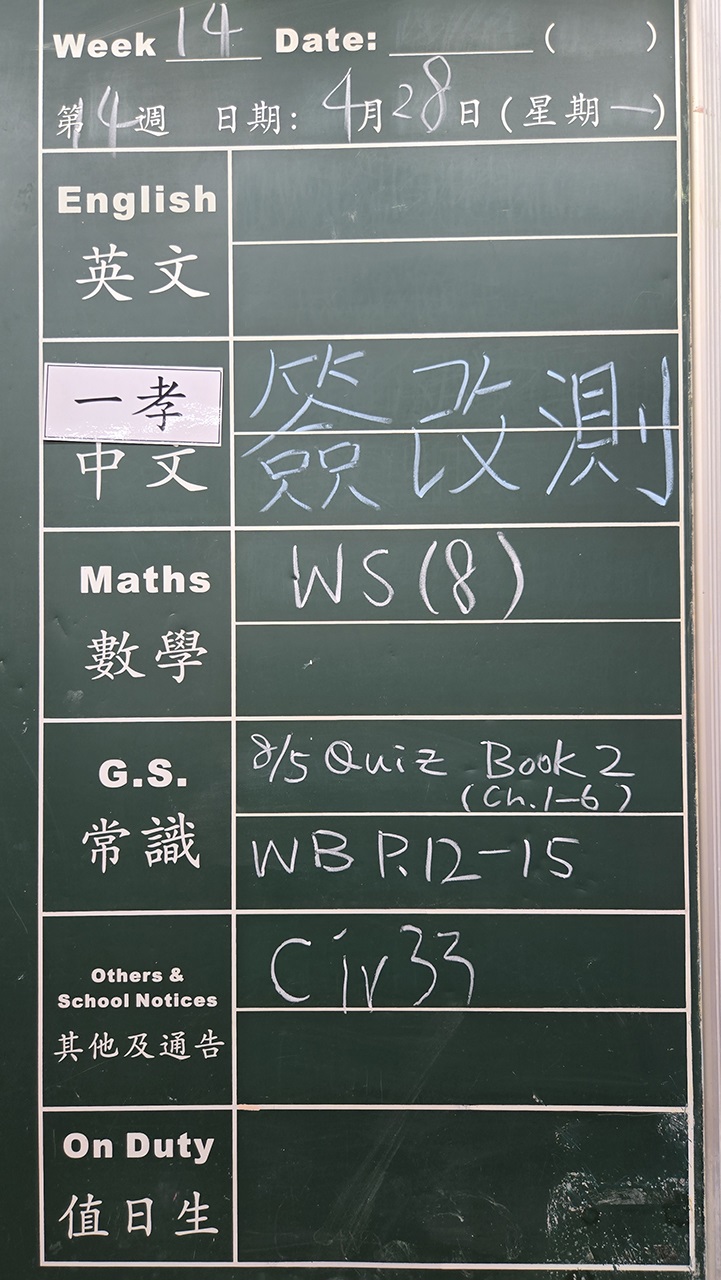 Week 14 Date: ( )
第14週 日期: 4月28日(星期一)
English
英文
一孝
中文
簽改測
Maths
數學
WS(8)
G.S.
常識
8/5 Quiz Book 2
(Ch.1-6)
WB P.12-15
Others &
School Notices
其他及通告
Cir33
On Duty
值日生